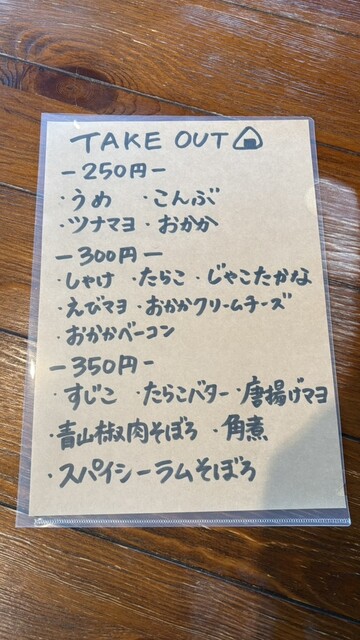 TAKE OUT
-250円-
・うめ ・こんぶ
・ツナマヨ ・おかか
-300円-
・しゃけ ・たらこ ・じゃこたかな
・えびマヨ ・おかかクリームチーズ
・おかかベーコン
-350円-
・すじこ ・たらこバター ・唐揚げマヨ
・青山椒肉そぼろ ・角煮
・スパイシーラムそぼろ